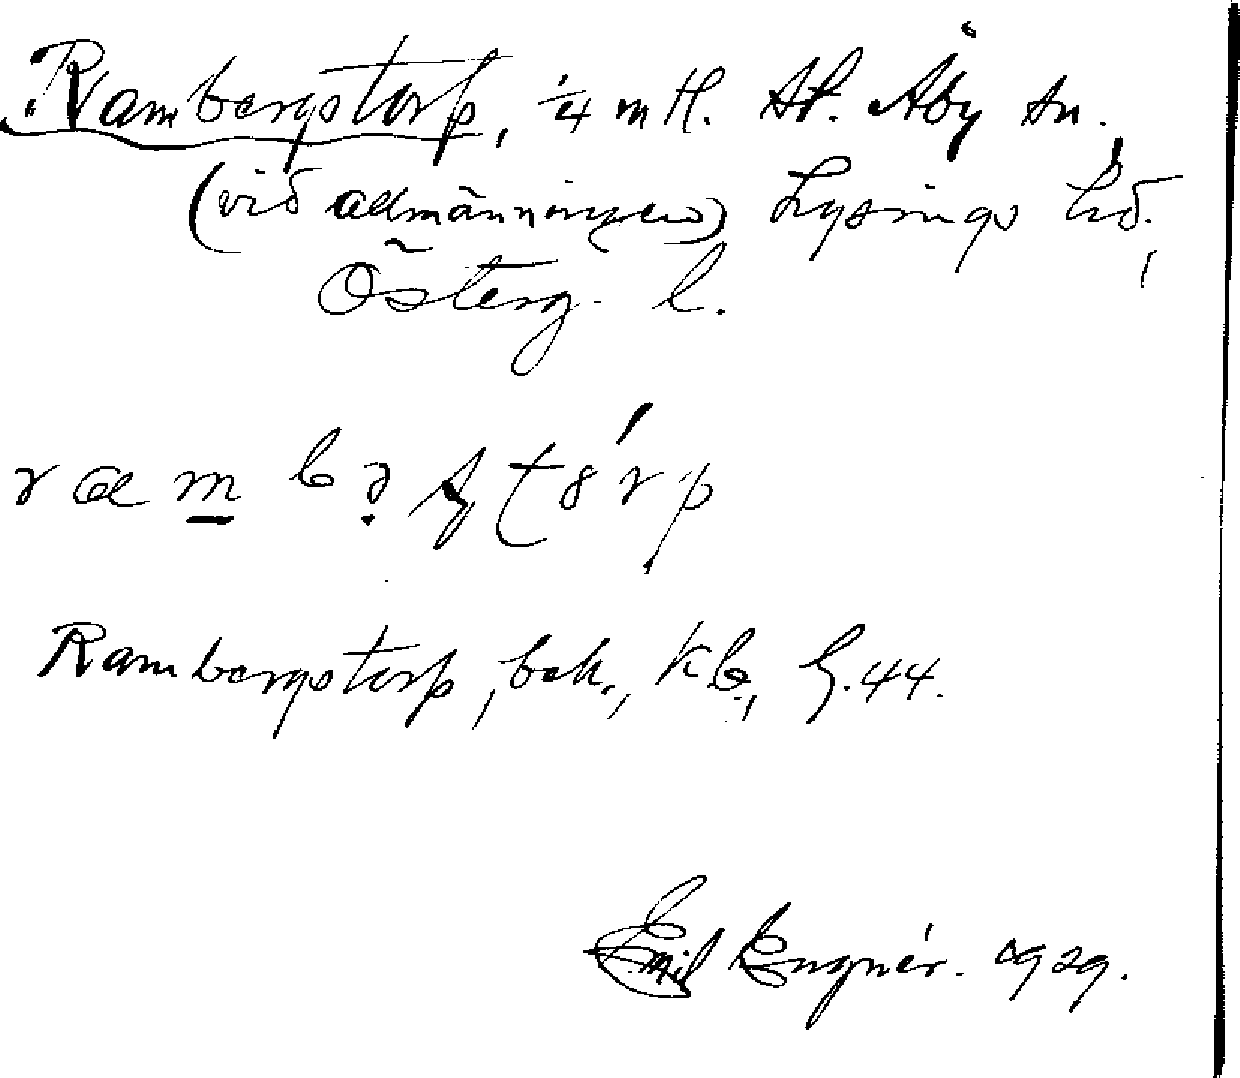 Rambergstorp, 1/4 mtl. St. Åby sn.,
(vid allmänningen) Lysings hd.,
Österg. l.
Rambergstorp, bek., kb., h. 44.
Emil Engnér. 1929.